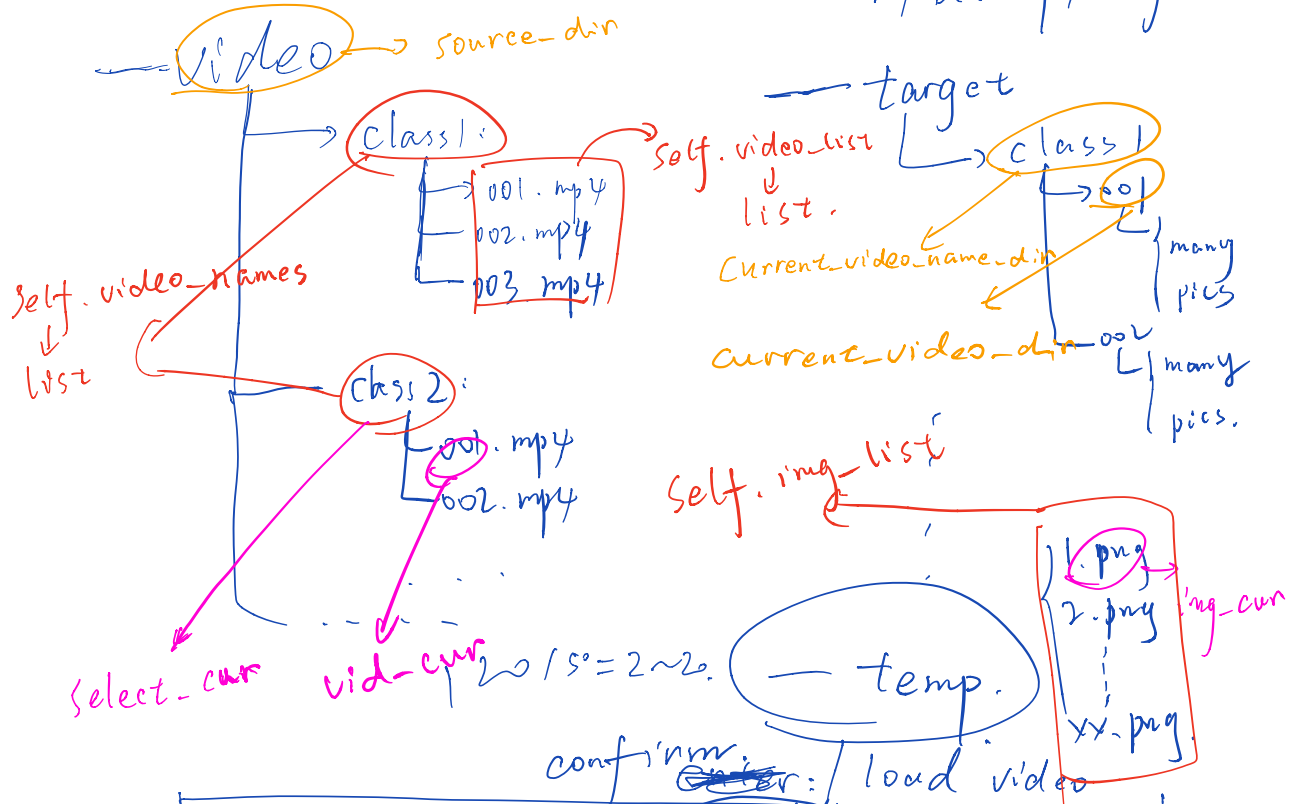 video
source_dir
class1:
001.mp4
002.mp4
003 mp4
self.video_list
list.
self.video_names
list
class2:
001.mp4
002.mp4
select_cur
vid_cur
target
class1
001
many
pics
current_video_name_dir
current_video_dir
002
many
pics.
self.img_list
1.png
2.png
xx.png
img_cur
temp.
confirm:
load video